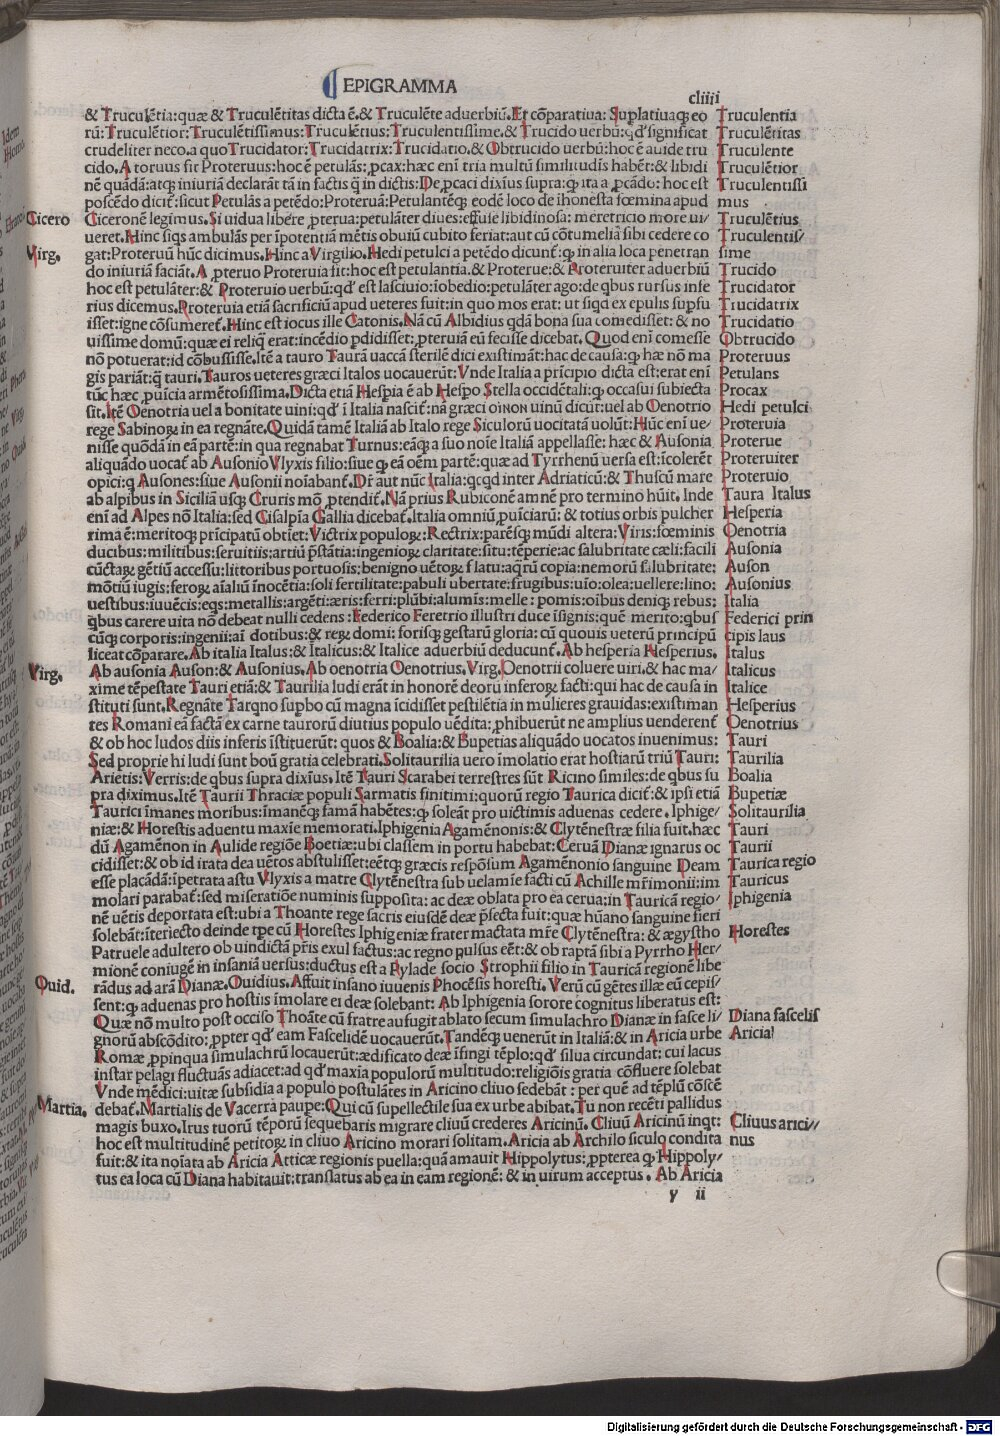 EPIGRAMMA
cliiii
& Truculẽtia: quæ & Truculẽtitas dicta ẽ. & Truculẽte aduerbiũ. Et cõparatiua: Suplatiuaq; eo
rũ: Truculẽtior: Truculẽtissimus: Truculẽtius: Truculentissime. & Trucido uerbũ: qd' significat
crudeliter neco. a quo Trucidator: Trucidatrix: Trucidatio. & Obtrucido uerbũ: hoc ẽ auide tru
cido. A toruus fit Proteruus: hoc ẽ petulãs: pcax: hæc enĩ tria multũ similitudĩs habẽt: & libidi
nẽ quãdã: atq; iniuriã declarãt tã in factis q̃ in dictis: De pcaci diximus supra: q ita a pcãdo: hoc est
poscẽdo dicit̃: sicut Petulãs a petẽdo: Proteruã: Petulantẽq; eodẽ loco de ihonesta fœmina apud
Ciceronẽ legimus. Si uidua libẽre pterua: petulãter diues: effuse libidinosa: meretricio more ui/
ueret. Hinc siqs ambulãs per ĩpotentiã mẽtis obuiũ cubito feriat: aut cũ cõtumelia sibi cedere co
gat: Proteruũ hũc dicimus. Hinc a Virgilio. Hedi petulci a petẽdo dicunt̃: q in alia loca penetran
do iniuriã faciãt. A pteruo Proteruia fit: hoc est petulantia. & Proterue: & Proteruiter aduerbiũ
hoc est petulãter: & Proteruio uerbũ: qd' est lasciuio: iobedio: petulãter ago: de qbus rursus infe
rius dicemus. Proteruia etiã sacrificiũ apud ueteres fuit: in quo mos erat: ut siqd ex epulis supfu
isset: igne cõsumeret̃. Hinc est iocus ille Catonis. Nã cũ Albidius qdã bona sua comedisset: & no
uissime domũ: quæ ei reliq̃ erat: incẽdio pdidisset: pteruiã eũ fecisse dicebat. Quod enĩ comesse
nõ potuerat: id cõbussisse. Itẽ a tauro Taurã uaccã sterilẽ dici existimãt: hac de causa: q hæ nõ ma
gis pariãt: q̃ tauri. Tauros ueteres græci Italos uocauerũt: Vnde Italia a prĩcipio dicta est: erat enĩ
tũc hæc puĩcia armẽtosissima. Dicta etiã Hespia ẽ ab Hespo Stella occidẽtali: q occasui subiecta
sit. Itẽ Oenotria uel a bonitate uini: qd' ĩ Italia nascit̃: nã græci οἶνον uinũ dicũt: uel ab Oenotrio
rege Sabinoꝝ in ea regnãte. Quidã tamẽ Italiã ab Italo rege Siculorũ uocitatã uolũt: Hũc enĩ ue/
nisse quõdã in eã partẽ: in qua regnabat Turnus: eãq; a suo noĩe Italiã appellasse: hæc & Ausonia
aliquãdo uocat̃ ab Ausonio Vlyxis filio: siue q eã oẽm partẽ: quæ ad Tyrrhenũ uersa est: ĩcolerẽt
opici: q Ausones: siue Ausonii noĩabant̃. Dr̃ aut nũc Italia: qcqd inter Adriaticũ: & Thuscũ mare
ab alpibus in Siciliã usq; Cruris mõ ptendit̃. Nã prius Rubiconẽ amnẽ pro termino hũit. Inde
enĩ ad Alpes nõ Italia: sed Cisalpĩa Gallia dicebat̃. Italia omniũ puĩciarũ: & totius orbis pulcher
rima ẽ: meritoq; prĩcipatũ obtĩet: Victrix populoꝝ: Rectrix: parẽsq; mũdi altera: Viris: fœminis
ducibus: militibus: seruitiis: artiũ p̃stãtia: ingenioꝝ claritate: situ: tẽperie: ac salubritate cæli: facili
cũctaꝝ gẽtiũ accessu: littoribus portuosis: benigno uẽtoꝝ flatu: aqrũ copia: nemorũ salubritate:
mõtiũ iugis: feroꝝ aĩaliũ ĩnocẽtia: soli fertilitate: pabuli ubertate: frugibus: uĩo: olea: uellere: lino:
uestibus: iuuẽcis: eqs: metallis: argẽti: æris: ferri: plũbi: alumĩs: melle: pomis: oĩbus deniq; rebus:
qbus carere uita nõ debeat nulli cedens: Federico Feretrio illustri duce ĩsignis: quẽ merito: qbus
cũq; corporis: ingenii: aĩ dotibus: & reꝝ domi: forisq; gestarũ gloria: cũ quouis ueterũ principũ
liceat cõparare. Ab italia Italus: & Italicus: & Italice aduerbiũ deducunt̃. Ab hesperia Hesperius.
Ab ausonia Auson: & Ausonius. Ab oenotria Oenotrius. Virg. Oenotrii coluere uiri. & hac ma/
xime tẽpestate Tauri etiã: & Taurilia ludi erãt in honorẽ deorũ inferoꝝ facti: qui hac de causa in
stituti sunt. Regnãte Tarqno supbo cũ magna ĩcidisset pestilẽtia in mulieres grauidas: existiman
tes Romani eã factã ex carne taurorũ diutius populo uẽdita: phibuerũt ne amplius uenderent̃
& ob hoc ludos diis inferis ĩstituerũt: quos & Boalia: & Bupetias aliquãdo uocatos inuenimus:
Sed proprie hi ludi sunt boũ gratia celebrati. Solitaurilia uero ĩmolatio erat hostiarũ triũ Tauri:
Arietis: Verris: de qbus supra diximus. Itẽ Tauri Scarabei terrestres sũt Ricino similes: de qbus su
pra diximus. Itẽ Taurii Thraciæ populi Sarmatis finitimi: quorũ regio Taurica dicit̃: & ipsi etiã
Taurici ĩmanes moribus: ĩmanẽq; famã habẽtes: q soleãt pro uictimis aduenas cedere. Iphige/
niæ: & Horestis aduentu maxĩe memorati. Iphigenia Agamẽnonis: & Clytẽnestræ filia fuit. hæc
dũ Agamẽnon in Aulide regiõe Boetiæ: ubi classem in portu habebat: Ceruã Dianæ ignarus oc
cidisset: & ob id irata dea uẽtos abstulisset: eẽtq; græcis respõsum Agamẽnonio sanguine Deam
esse placãdã: ĩpetrata astu Vlyxis a matre Clytẽnestra sub uelamĩe facti cũ Achille mr̃imonii: im
molari parabat̃: sed miseratiõe numinis supposita: ac deæ oblata pro ea cerua: in Tauricã regio/
nẽ uẽtis deportata est: ubi a Thoante rege sacris eiusdẽ deæ p̃fecta fuit: quæ hũano sanguine fieri
solebãt: ĩteriecto deinde tpe cũ Horestes Iphigeniæ frater mactata mr̃e Clytẽnestra: & ægystho
Patruele adultero ob uindictã pr̃is exul factus: ac regno pulsus eẽt: & ob raptã sibi a Pyrrho Her/
mionẽ coniugẽ in insaniã uersus: ductus est a Pylade socio Strophii filio in Tauricã regionẽ libe
rãdus ad arã Dianæ. Ouidius. Affuit insano iuuenis Phocẽsis horesti. Verũ cũ gẽtes illæ eũ cepis/
sent: q aduenas pro hostiis ĩmolare ei deæ solebant: Ab Iphigenia sorore cognitus liberatus est:
Quæ nõ multo post occiso Thoãte cũ fratre aufugit ablato secum simulachro Dianæ in fasce li/
gnorũ abscõdito: ppter qd' eam Fascelidẽ uocauerũt. Tandẽq; uenerũt in Italiã: & in Aricia urbe
Romæ ppinqua simulachrũ locauerũt: ædificato deæ ĩsingi tẽplo: qd' silua circundat: cui lacus
instar pelagi fluctuãs adiacet: ad qd' maxia populorũ multitudo: religiõis gratia cõfluere solebat
Vnde mẽdici: uitæ subsidia a populo postulãtes in Aricino cliuo sedebãt: per quẽ ad tẽplũ cõscẽ
debat̃. Martialis de Vacerra paupe: Qui cũ supellectile sua ex urbe abibat. Tu non recẽti pallidus
magis buxo. Irus tuorũ tẽporũ sequebaris migrare cliuũ crederes Aricinũ. Cliuũ Aricinũ inqt:
hoc est multitudinẽ petitoꝝ in cliuo Aricino morari solitam. Aricia ab Archilo siculo condita
fuit: & ita noĩata ab Aricia Atticæ regionis puella: quã amauit Hippolytus: ppterea q Hippoly/
tus ea loca cũ Diana habitauit: translatus ab ea in eam regionẽ: & in uirum acceptus. Ab Aricia
y ii
Cicero
Virg.
Virg.
Ouid.
Martia.
Truculentia
Truculẽtitas
Truculente
Truculẽtior
Truculentissi
mus
Truculẽtius
Truculentis/
sime
Trucido
Trucidator
Trucidatrix
Trucidatio
Obtrucido
Proteruus
Petulans
Procax
Hedi petulci
Proteruia
Proterue
Proteruiter
Proteruio
Taura Italus
Hesperia
Oenotria
Ausonia
Auson
Ausonius
Italia
Federici prin
cipis laus
Italus
Italicus
Italice
Hesperius
Oenotrius
Tauri
Taurilia
Boalia
Bupetiæ
Solitaurilia
Tauri
Taurii
Taurica regio
Tauricus
Iphigenia
Horestes
Diana fascelis
Aricia
Cliuus arici/
nus
Digitalisierung gefördert durch die Deutsche Forschungsgemeinschaft - DFG